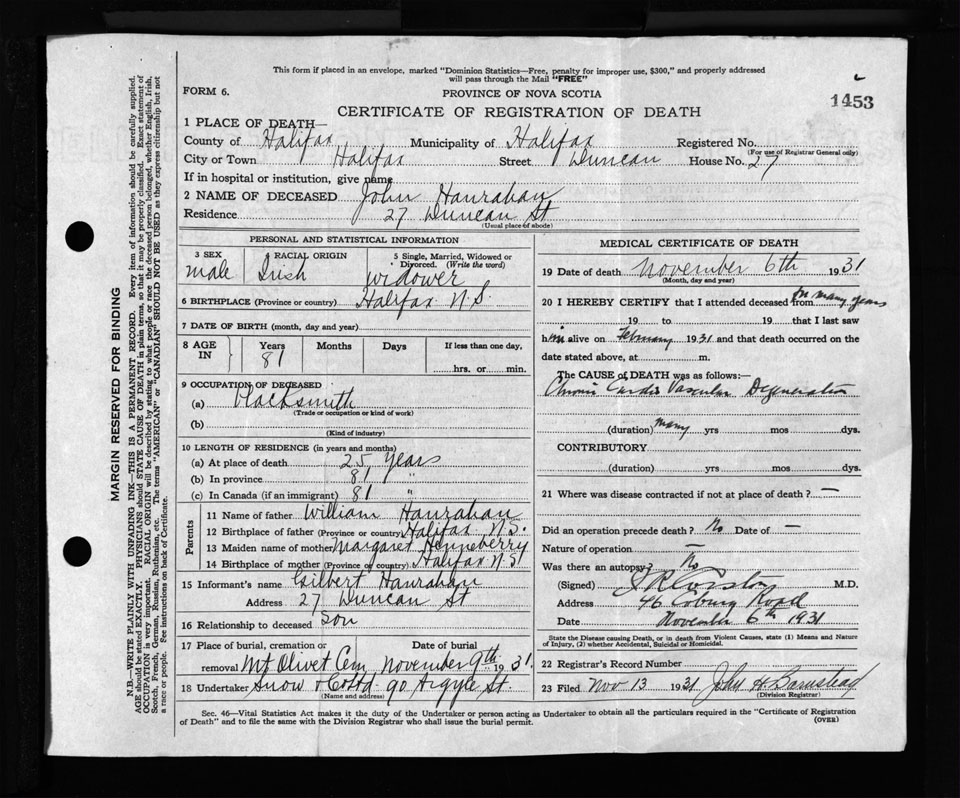 This form if placed in an envelope, marked "Dominion Statistics—Free, penalty for improper use, $300," and properly addressed
will pass through the Mail "FREE"
FORM 6.
PROVINCE OF NOVA SCOTIA
1453
CERTIFICATE OF REGISTRATION OF DEATH
1 PLACE OF DEATH—
County of Halifax Municipality of Halifax Registered No.
(For use of Registrar General only)
City or Town Halifax Street Duncan House No. 27
If in hospital or institution, give name
2 NAME OF DECEASED John Hanrahan
Residence 27 Duncan St
(Usual place of abode)
PERSONAL AND STATISTICAL INFORMATION
3 SEX RACIAL ORIGIN 5 Single, Married, Widowed or
Divorced. (Write the word)
male Irish widower
6 BIRTHPLACE (Province or country) Halifax N.S.
7 DATE OF BIRTH (month, day and year)
8 AGE IN Years Months Days If less than one day,
81 hrs. or min.
9 OCCUPATION OF DECEASED
(a) Blacksmith
(Trade or occupation or kind of work)
(b)
(Kind of industry)
10 LENGTH OF RESIDENCE (in years and months)
(a) At place of death 25 years
(b) In province 81 "
(c) In Canada (if an immigrant) 81 "
Parents
11 Name of father William Hanrahan
12 Birthplace of father (Province or country) Halifax N.S.
13 Maiden name of mother Margaret Henneberry
14 Birthplace of mother (Province or country) Halifax N S
15 Informant's name Gilbert Hanrahan
Address 27 Duncan St
16 Relationship to deceased son
17 Place of burial, cremation or Date of burial
removal Mt Olivet Cem November 9th 1931.
18 Undertaker Snow & Co Ltd 90 Argyle St.
(Name and address)
MEDICAL CERTIFICATE OF DEATH
19 Date of death November 6th 1931
(Month, day and year)
20 I HEREBY CERTIFY that I attended deceased from for many years
19 to 19 that I last saw
him alive on February 1931 and that death occurred on the
date stated above, at m.
The CAUSE of DEATH was as follows:—
Chronic Cardio Vascular Degeneration
(duration) many yrs mos dys.
CONTRIBUTORY
(duration) yrs mos dys.
21 Where was disease contracted if not at place of death? —
Did an operation precede death? No Date of —
Nature of operation —
Was there an autopsy? No
(Signed) M.D.
Address 46 Coburg Road
Date November 6th 1931
State the Disease causing Death, or in death from Violent Causes, state (1) Means and Nature
of Injury, (2) whether Accidental, Suicidal or Homicidal.
22 Registrar's Record Number
23 Filed Nov 13 1931 John H Barnstead
(Division Registrar)
Sec. 46—Vital Statistics Act makes it the duty of the Undertaker or person acting as Undertaker to obtain all the particulars required in the "Certificate of Registration
of Death" and to file the same with the Division Registrar who shall issue the burial permit.
(OVER)
MARGIN RESERVED FOR BINDING
N.B.—WRITE PLAINLY WITH UNFADING INK—THIS IS A PERMANENT RECORD. Every item of information should be carefully supplied.
AGE should be stated EXACTLY. PHYSICIANS should STATE CAUSE OF DEATH in plain terms, so that it may be properly classified. Exact statement of
OCCUPATION is very important. RACIAL ORIGIN will be described by stating to what people or race the deceased person belonged, whether English, Irish,
Scotch, French, German, Russian, Ruthenian, etc. The terms "AMERICAN" or "CANADIAN" SHOULD NOT BE USED as they express citizenship but not
a race or people. See instructions on back of Certificate.